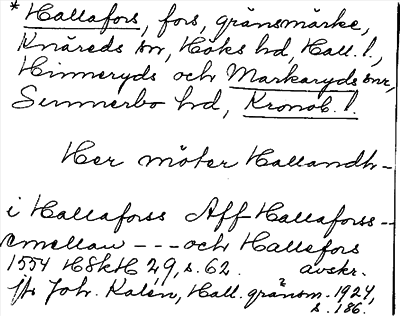 * Hallafors, fors, gränsmärke,
Knäreds sn, Höks hd, Hall. l.,
Hinneryds och Markaryds snr,
Sunnerbo hd, Kronob. l.
Her möter Hallandh-
i Hallaforss Aff Hallaforss --
emellan --- och Hallefors
1554 HSkH 29, s. 62. avskr.
jfr Joh. Kalén, Hall. gränsm. 1924,
s. 186.